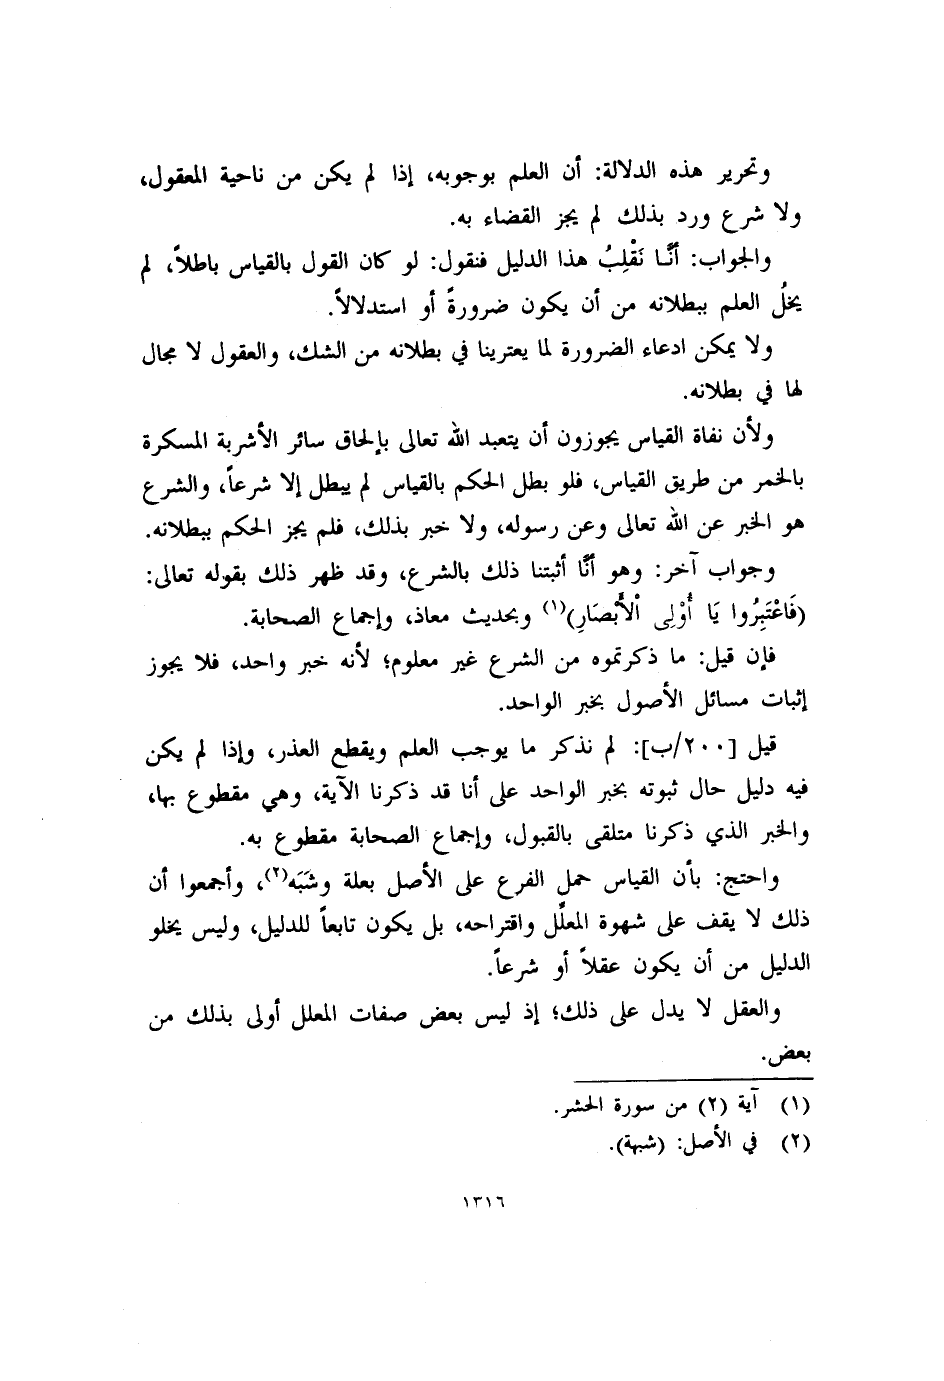 وتحرير هذه الدلالة: أن العلم بوجوبه، إذا لم يكن من ناحية المعقول،
ولا شرع ورد بذلك لم يجز القضاء به.
والجواب: أنَّا نَقْلِبُ هذا الدليل فنقول: لو كان القول بالقياس باطلاً، لم
يخلُ العلم ببطلانه من أن يكون ضرورةً أو استدلالاً.
ولا يمكن ادعاء الضرورة لما يعترينا في بطلانه من الشك، والعقول لا مجال
لها في بطلانه.
ولأن نفاة القياس يجوزون أن يتعبد الله تعالى بإلحاق سائر الأشربة المسكرة
بالخمر من طريق القياس، فلو بطل الحكم بالقياس لم يبطل إلا شرعاً، والشرع
هو الخبر عن الله تعالى وعن رسوله، ولا خبر بذلك، فلم يجز الحكم ببطلانه.
وجواب آخر: وهو أنَّا أثبتنا ذلك بالشرع، وقد ظهر ذلك بقوله تعالى:
(فَاعْتَبِرُوا يَا أُوْلِى الْأَبْصَارِ)(١) وبحديث معاذ، وإجماع الصحابة.
فإن قيل: ما ذكرتموه من الشرع غير معلوم؛ لأنه خبر واحد، فلا يجوز
إثبات مسائل الأصول بخبر الواحد.
قيل [٢٠٠/ب]: لم نذكر ما يوجب العلم ويقطع العذر، وإذا لم يكن
فيه دليل حال ثبوته بخبر الواحد على أنا قد ذكرنا الآية، وهي مقطوع بها،
والخبر الذي ذكرنا متلقى بالقبول، وإجماع الصحابة مقطوع به.
واحتج: بأن القياس حمل الفرع على الأصل بعلة وشَبَه(٢)، وأجمعوا أن
ذلك لا يقف على شهوة المعلِّل واقتراحه، بل يكون تابعاً للدليل، وليس يخلو
الدليل من أن يكون عقلاً أو شرعاً.
والعقل لا يدل على ذلك؛ إذ ليس بعض صفات المعلل أولى بذلك من
بعض.
(١) آية (٢) من سورة الحشر.
(٢) في الأصل: (شبهة).
١٣١٦